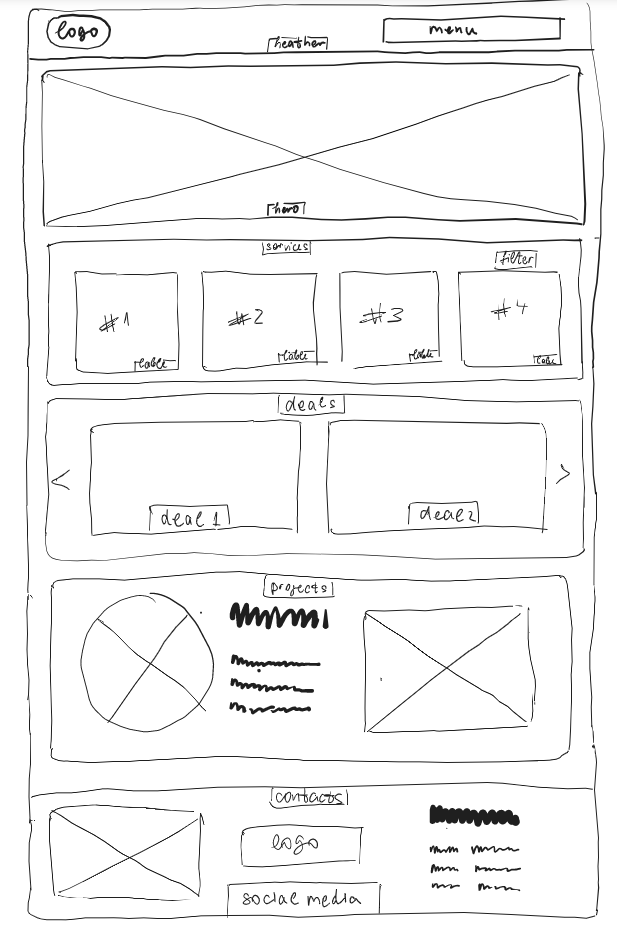 logo
menu
heather
hero
services
filter
#1
#2
#3
#4
lable
lable
lable
lable
deals
<
>
deal 1
deal 2
projects
contacts
logo
social media